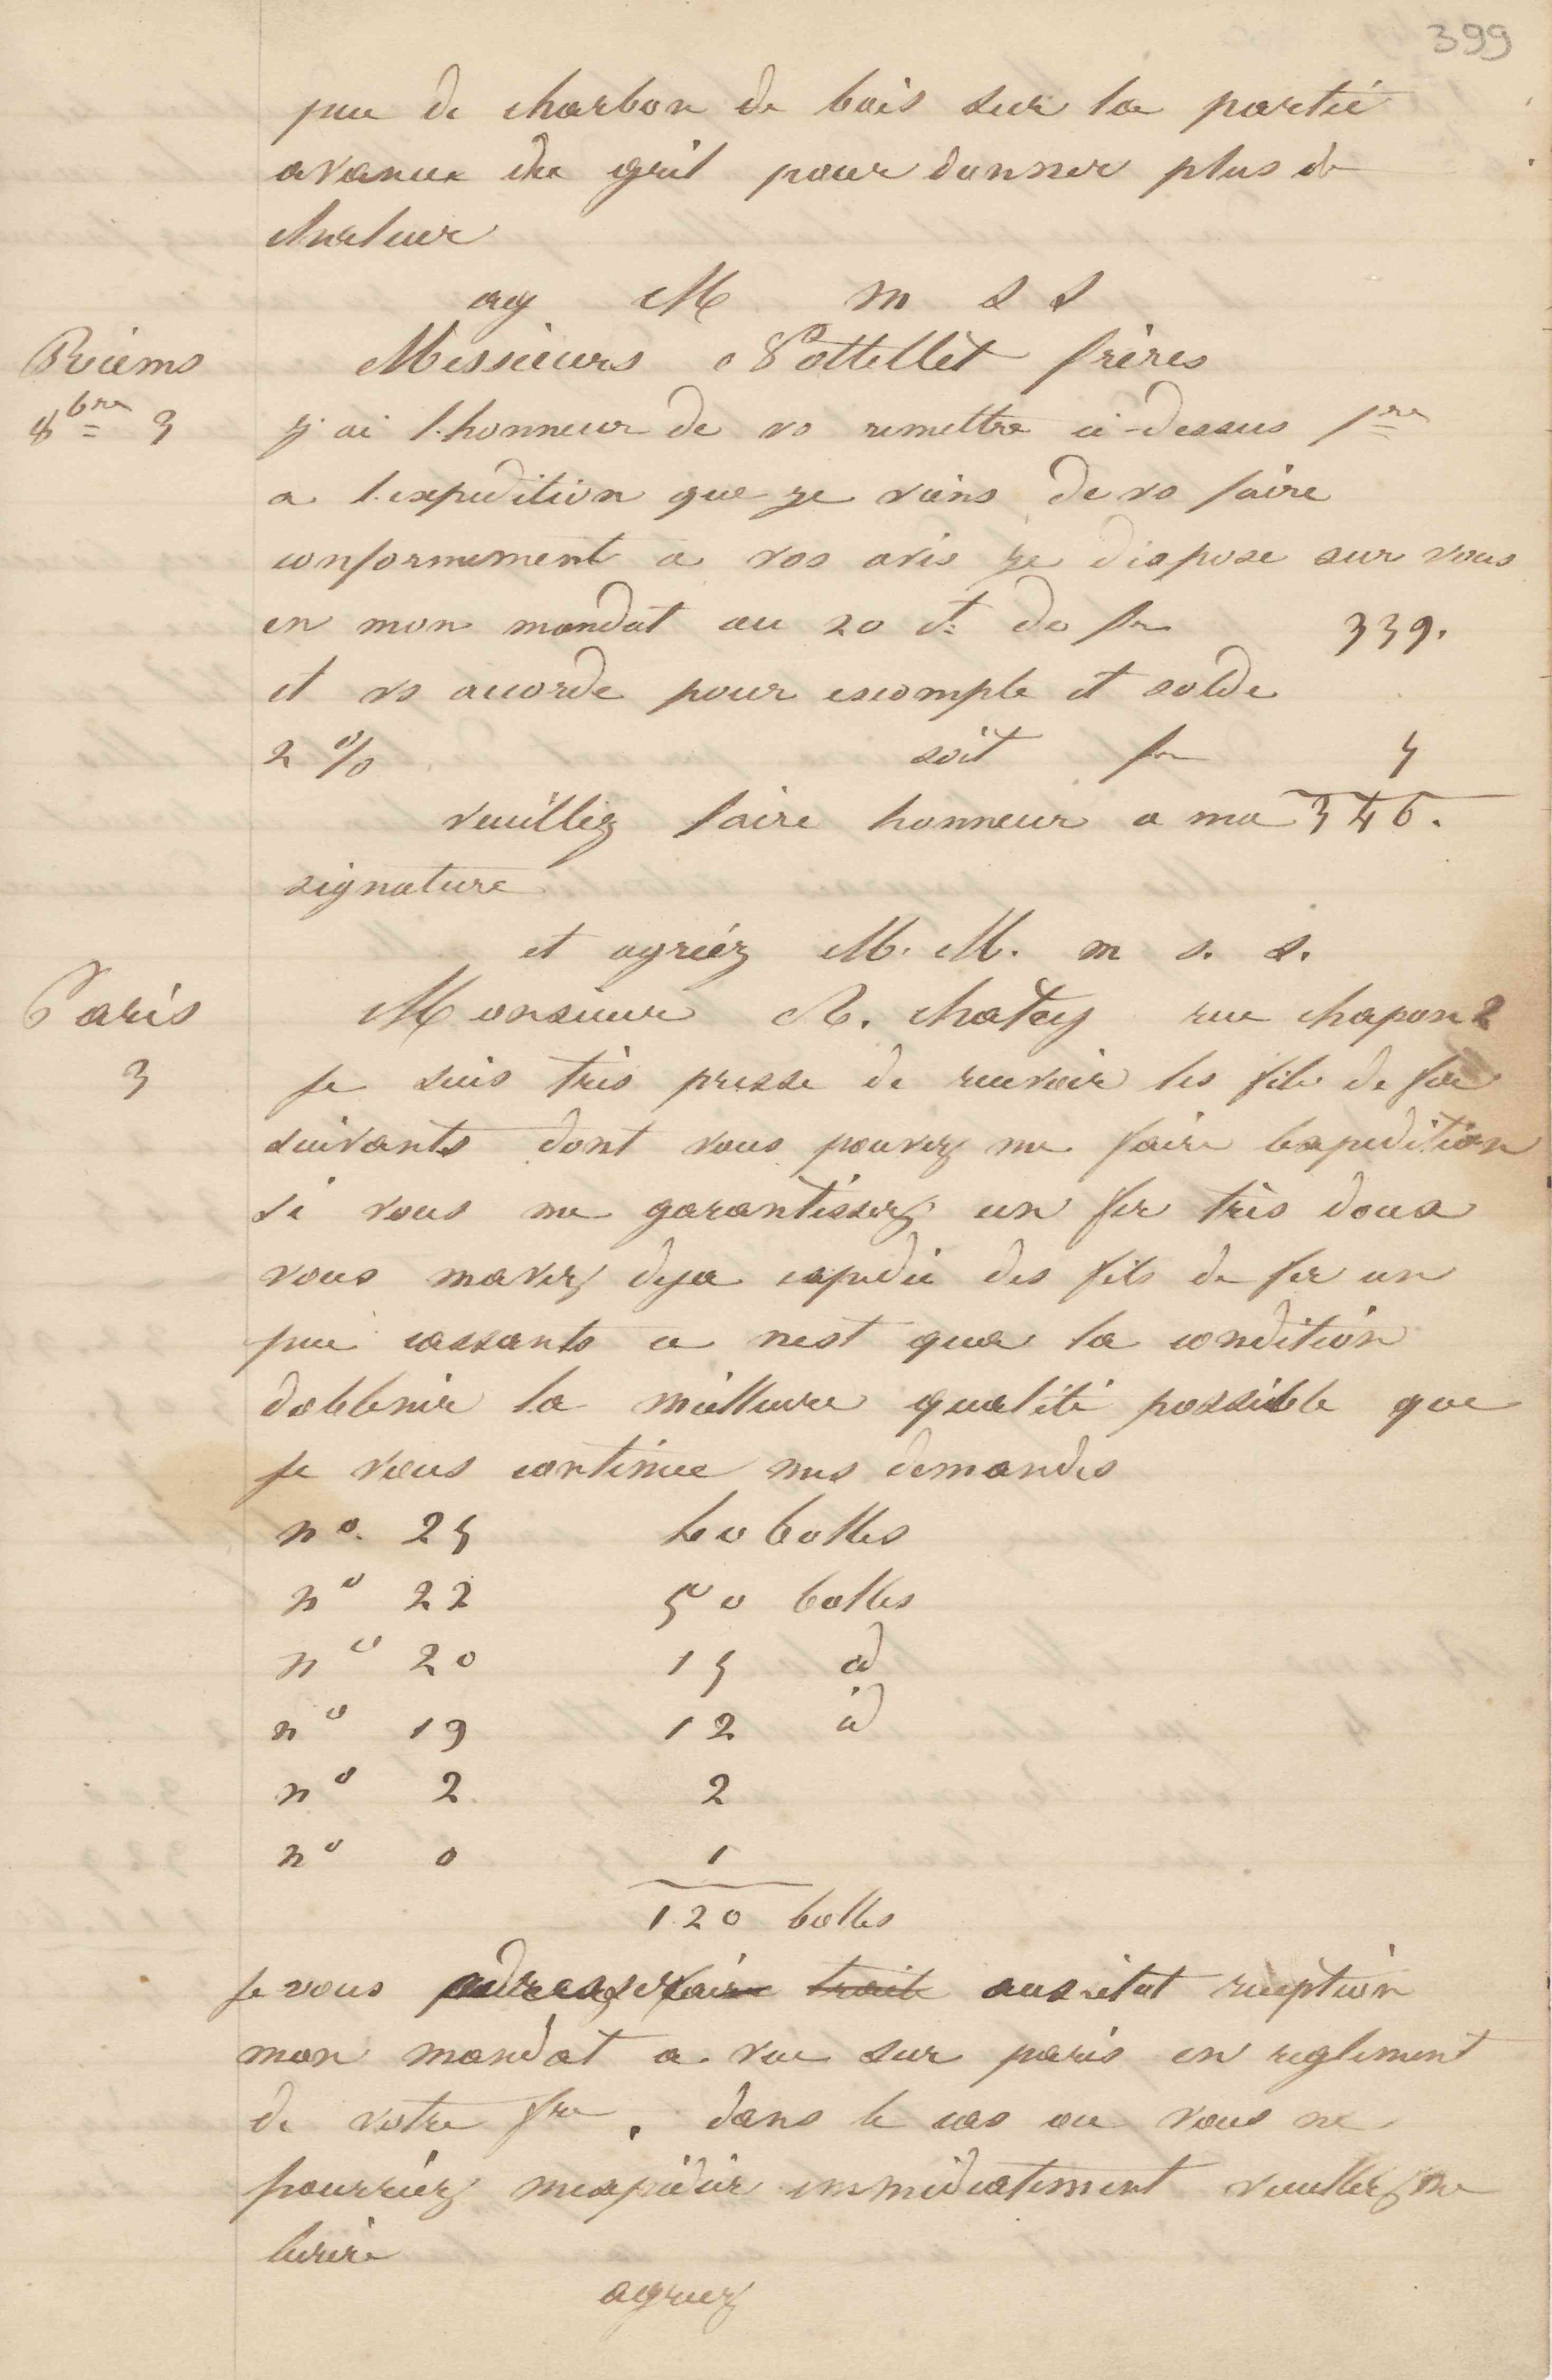 399
peu de charbon de bois sur la partie
avancee du gril pour donner plus de
chaleur
ag M m s s
Reims Messieurs Pottellet frères
8bre 3 j ai l.honneur de vs remettre ci-dessus fre
a l.expedition que je viens de vs faire
conformement a vos avis je dispose sur vous
en mon mandat au 20 ct de fr 339.
et vs acorde pour escompte et solde
2 % soit fr 7
veuillez faire honneur a ma 346.
signature
et agriéz M. M. m s. s.
Paris Monsieur A. chatey rue chapon 2
3 je suis très presse de recevoir les fils de fer
suivants dont vous pouvez me faire lexpedition
si vous me garantissez un fer très doux
vous mavez deja expedie des fils de fer un
peu cassants ce nest qua la condition
dobtenir la meilleure qualité possible que
je vous continue mes demandes
no. 25 40 bottes
no 22 50 bottes
no 20 15 id
no 19 12 id
no 2 2
no 0 1
120 bottes
je vous adresse faire traite aussitot reception
mon mandat a vue sur paris en reglement
de votre fre. dans le cas ou vous ne
pourriez mexpédier immédiatement veuillez me
lecrire
agreez